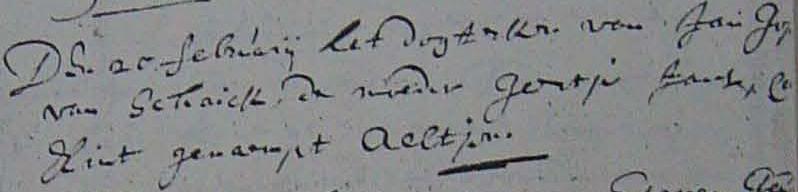 Den 20 februarij het dogterken van Jan
van Schaick de moeder geertje Jans
Kint genaempt Aeltjen.